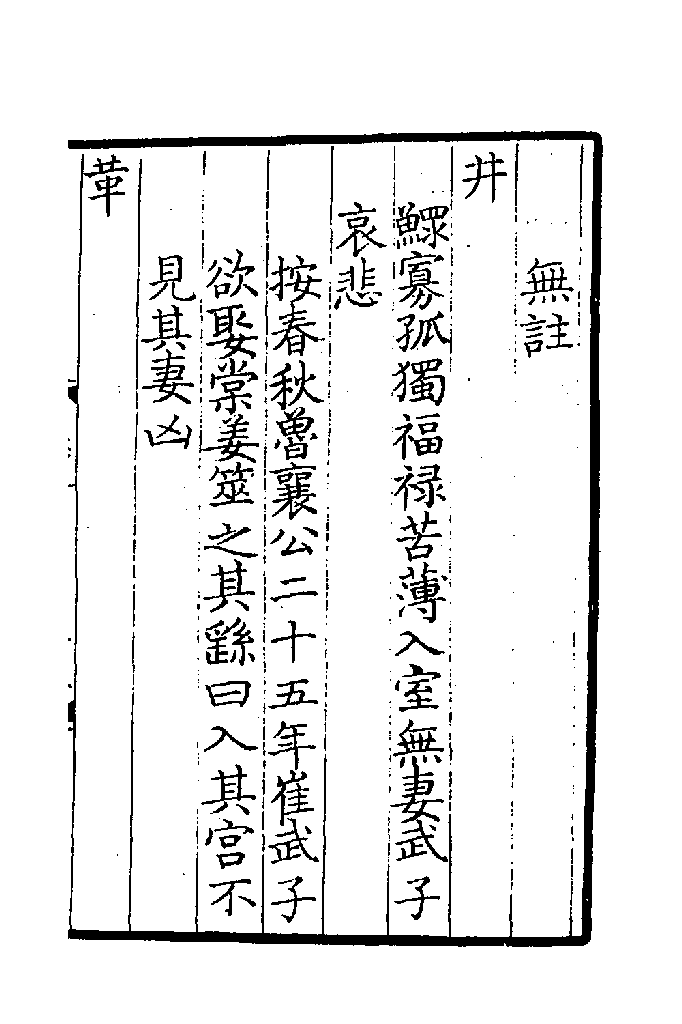 無註
井
鰥寡孤獨福禄苦薄入室無妻武子
哀悲
按春秋魯襄公二十五年崔武子
欲娶棠姜筮之其繇曰入其宫不
見其妻凶
革